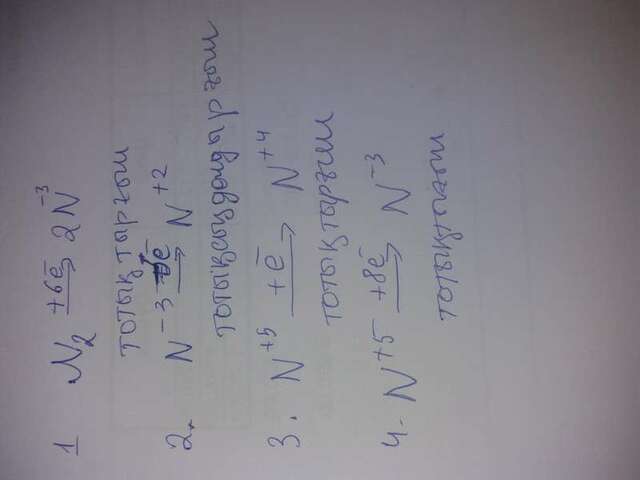 1 N₂ +6ē → 2N⁻³
тотықтырғыш
2. N⁻³ ē → N⁺²
тотықсыздандырғыш
3. N⁺⁵ +ē → N⁺⁴
тотықтырғыш
4. N⁺⁵ +8ē → N⁻³
тотықтығыш